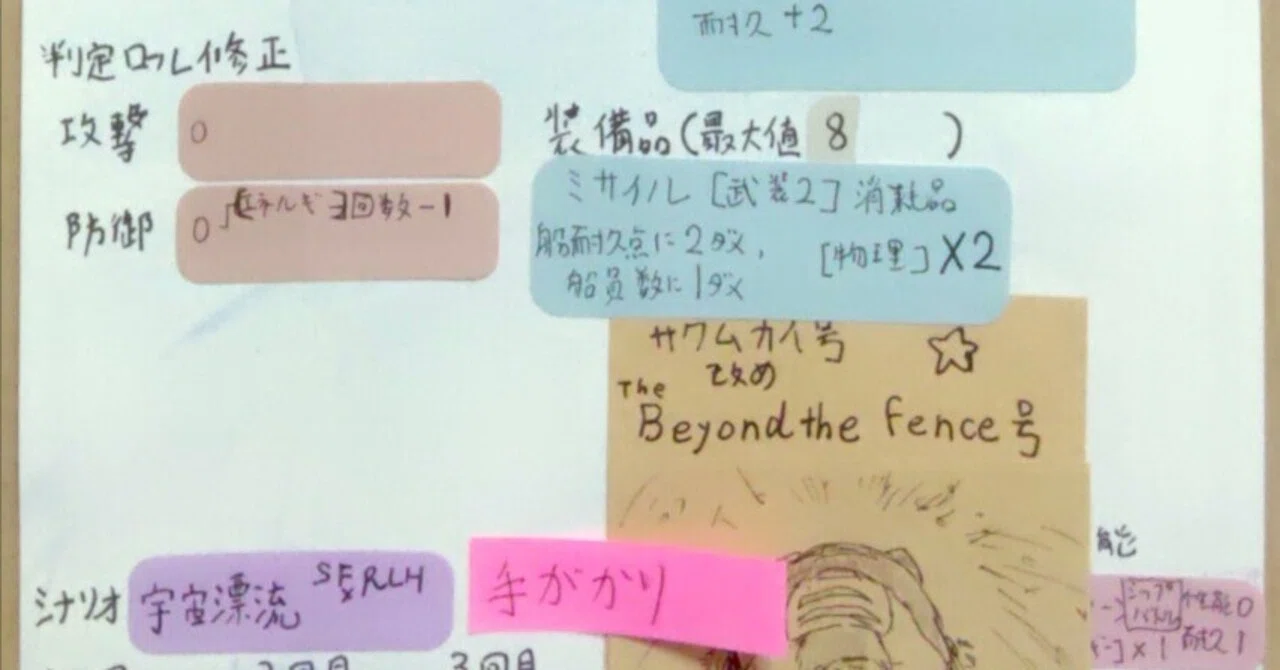 耐久 +2
判定ロール修正
攻撃 0
防御 0 [エネルギー]回数-1
装備品(最大値 8 )
ミサイル [武装2] 消耗品
船耐久点に2ダメ, [物理]×2
船員数に1ダメ
サワムカイ号 ☆
改め
The
Beyond the Fence号
シナリオ 宇宙漂流 SERCH
手がかり
能
シップ
バトル
性能0
耐久1
]×1
3回目